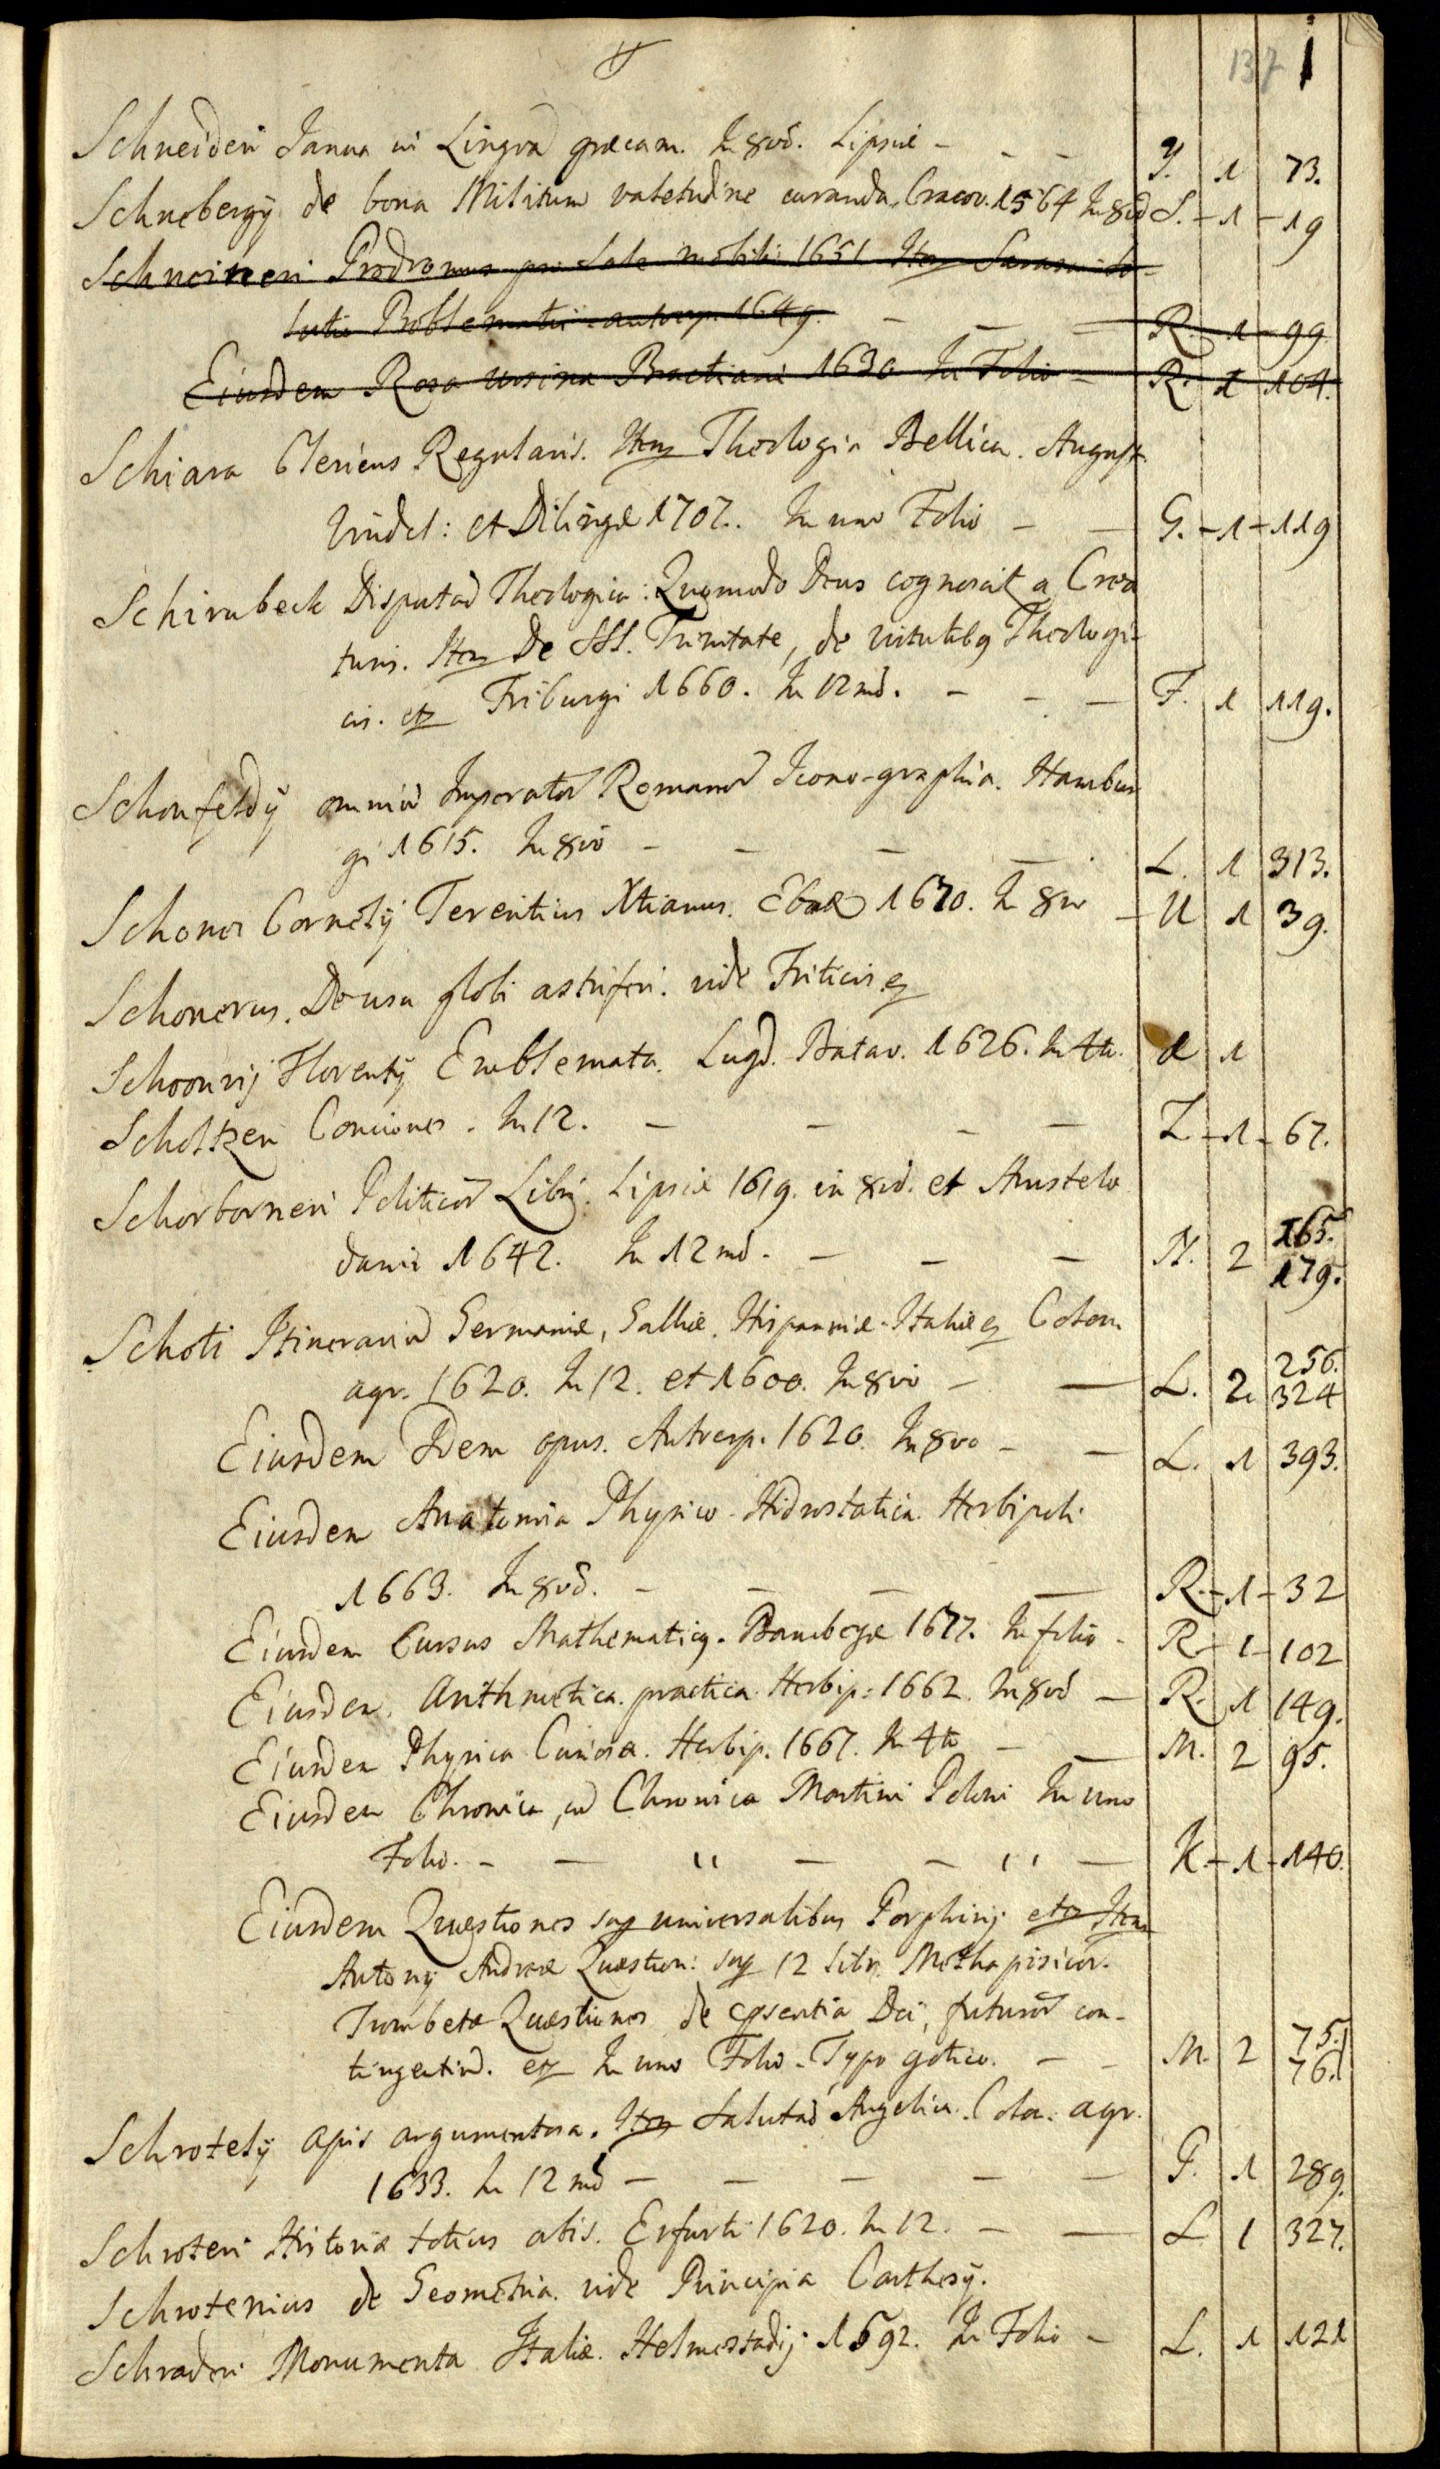 137 1
Schneideri Janua in Lingvā græcam. In 8vō. Lipsiæ - - - Y. 1 73.
Schnebergÿ de bona Militum valetudine curanda. Cracov. 1564 In 8vō S. - 1 - 19
Schneineri Prodromus pro Sole mobili 1651. Item
lutio Problematis antverp. 1649. - - - R. 1 - 99
Eiusdem Rosa Ursina Bractiani 1630 In Folio - R. 1 - 104.
Schiara Clericus Regularis. Item Theologia Bellica. August
Vindel: et Dilingæ 1707. In uno Folio - - G. - 1 - 119
Schirnbeck Disputaō Theologica: Quomodo Deus cognoscit a Crea
turis. Item De SSS. Trinitate, de virtutibq Theologi-
cis. etz Friburgi 1660. In 12mō. - - - F. 1 119.
Schonfeldÿ omniū Imperatoꝝ Romanoꝝ Icono-graphia. Hambur
gi 1615. In 8vō - - - - L. 1 313.
Schonei Cornelÿ Terentius Xtianus. 1670. In 8vo - U 1 39.
Schonerus. De usu globi astriferi. vide
Schoonvij Florentÿ Emblemata. Lugd. Batav. 1626. In 4to. 1
Scholtzen Conciones. In 12. - - - - Z - 1 - 67.
Schorborneri Politicoꝝ Libri. Lipsiæ 1619. in 8vō. et Amstelo
dami 1642. In 12mō. - - - N. 2 165.
179.
Schoti Itinerariū Germaniæ, Galliæ, Hispaniæ-Italiæq Colon
agr. 1620. In 12. et 1600. In 8vō - - L. 2. 256.
324
Eiusdem Idem opus. Antverp. 1620. In 8vo - - L. 1 393.
Eiusdem Anatomia Physico-Hidrostatica. Herbipoli
1663. In 8vō. - - - - R. - 1 - 32
Eiusdem Cursus Mathematicq. Bambergæ 1677. In folio - R - 1 - 102
Eiusdem. Arithmetica practica. Herbip: 1662. In 8vō - R. 1 149.
Eiusdem Physica Curiosa. Herbip. 1667. In 4to - - M. 2 95.
Eiusdem Chronica, ad Chronica Martini Poloni In uno
Folio. - - " - - " - K. - 1 - 140.
Eiusdem Quæstiones sup universalibus Porphirij etz Item
Antonÿ Andreæ Quæstion: sup 12 libr. Methaphisicor.
Trombetæ Quæstiones de essentia Dei, futuroꝝ con-
tingentiū. etz In uno Folio. Typo gotico. - - M. 2 75.
76.
Schrotelÿ apis argumentosa. Item Salutaō Angelica. Colon. agr.
1633. In 12mō - - - - - P. 1 289.
Schroteri Historiæ totius orbis. Erfurti 1620. In 12. - - L 1 327.
Schrotenius de Geometria. vide Principia Carthesÿ.
Schraderi Monumenta Italiæ. Helmestadij 1592. In Folio - L. 1 121